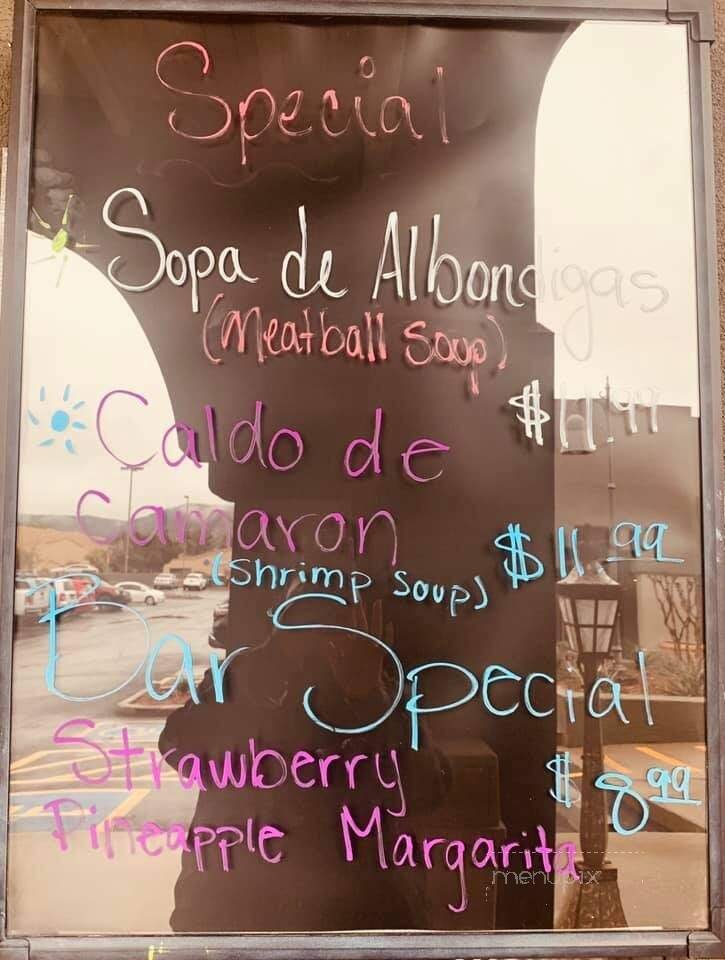 Special
Sopa de Albondigas
(Meatball Soup)
$11.99
Caldo de
Camaron
(Shrimp Soup)
$11.99
Bar Special
Strawberry
$8.99
Pineapple Margarita
menupix